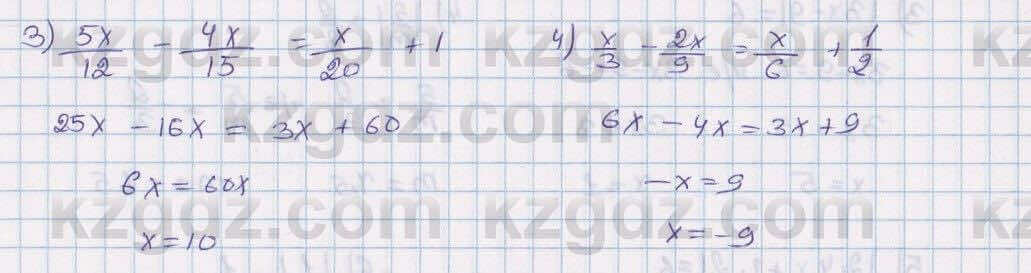 3) 5x/12 - 4x/15 = x/20 + 1
25x - 16x = 3x + 60
6x = 60x
x = 10
4) x/3 - 2x/9 = x/6 + 1/2
6x - 4x = 3x + 9
-x = 9
x = -9
kzgdz.com
kzgdz.com
kzgdz.com
kzgdz.com
kzgdz.com
kzgdz.com